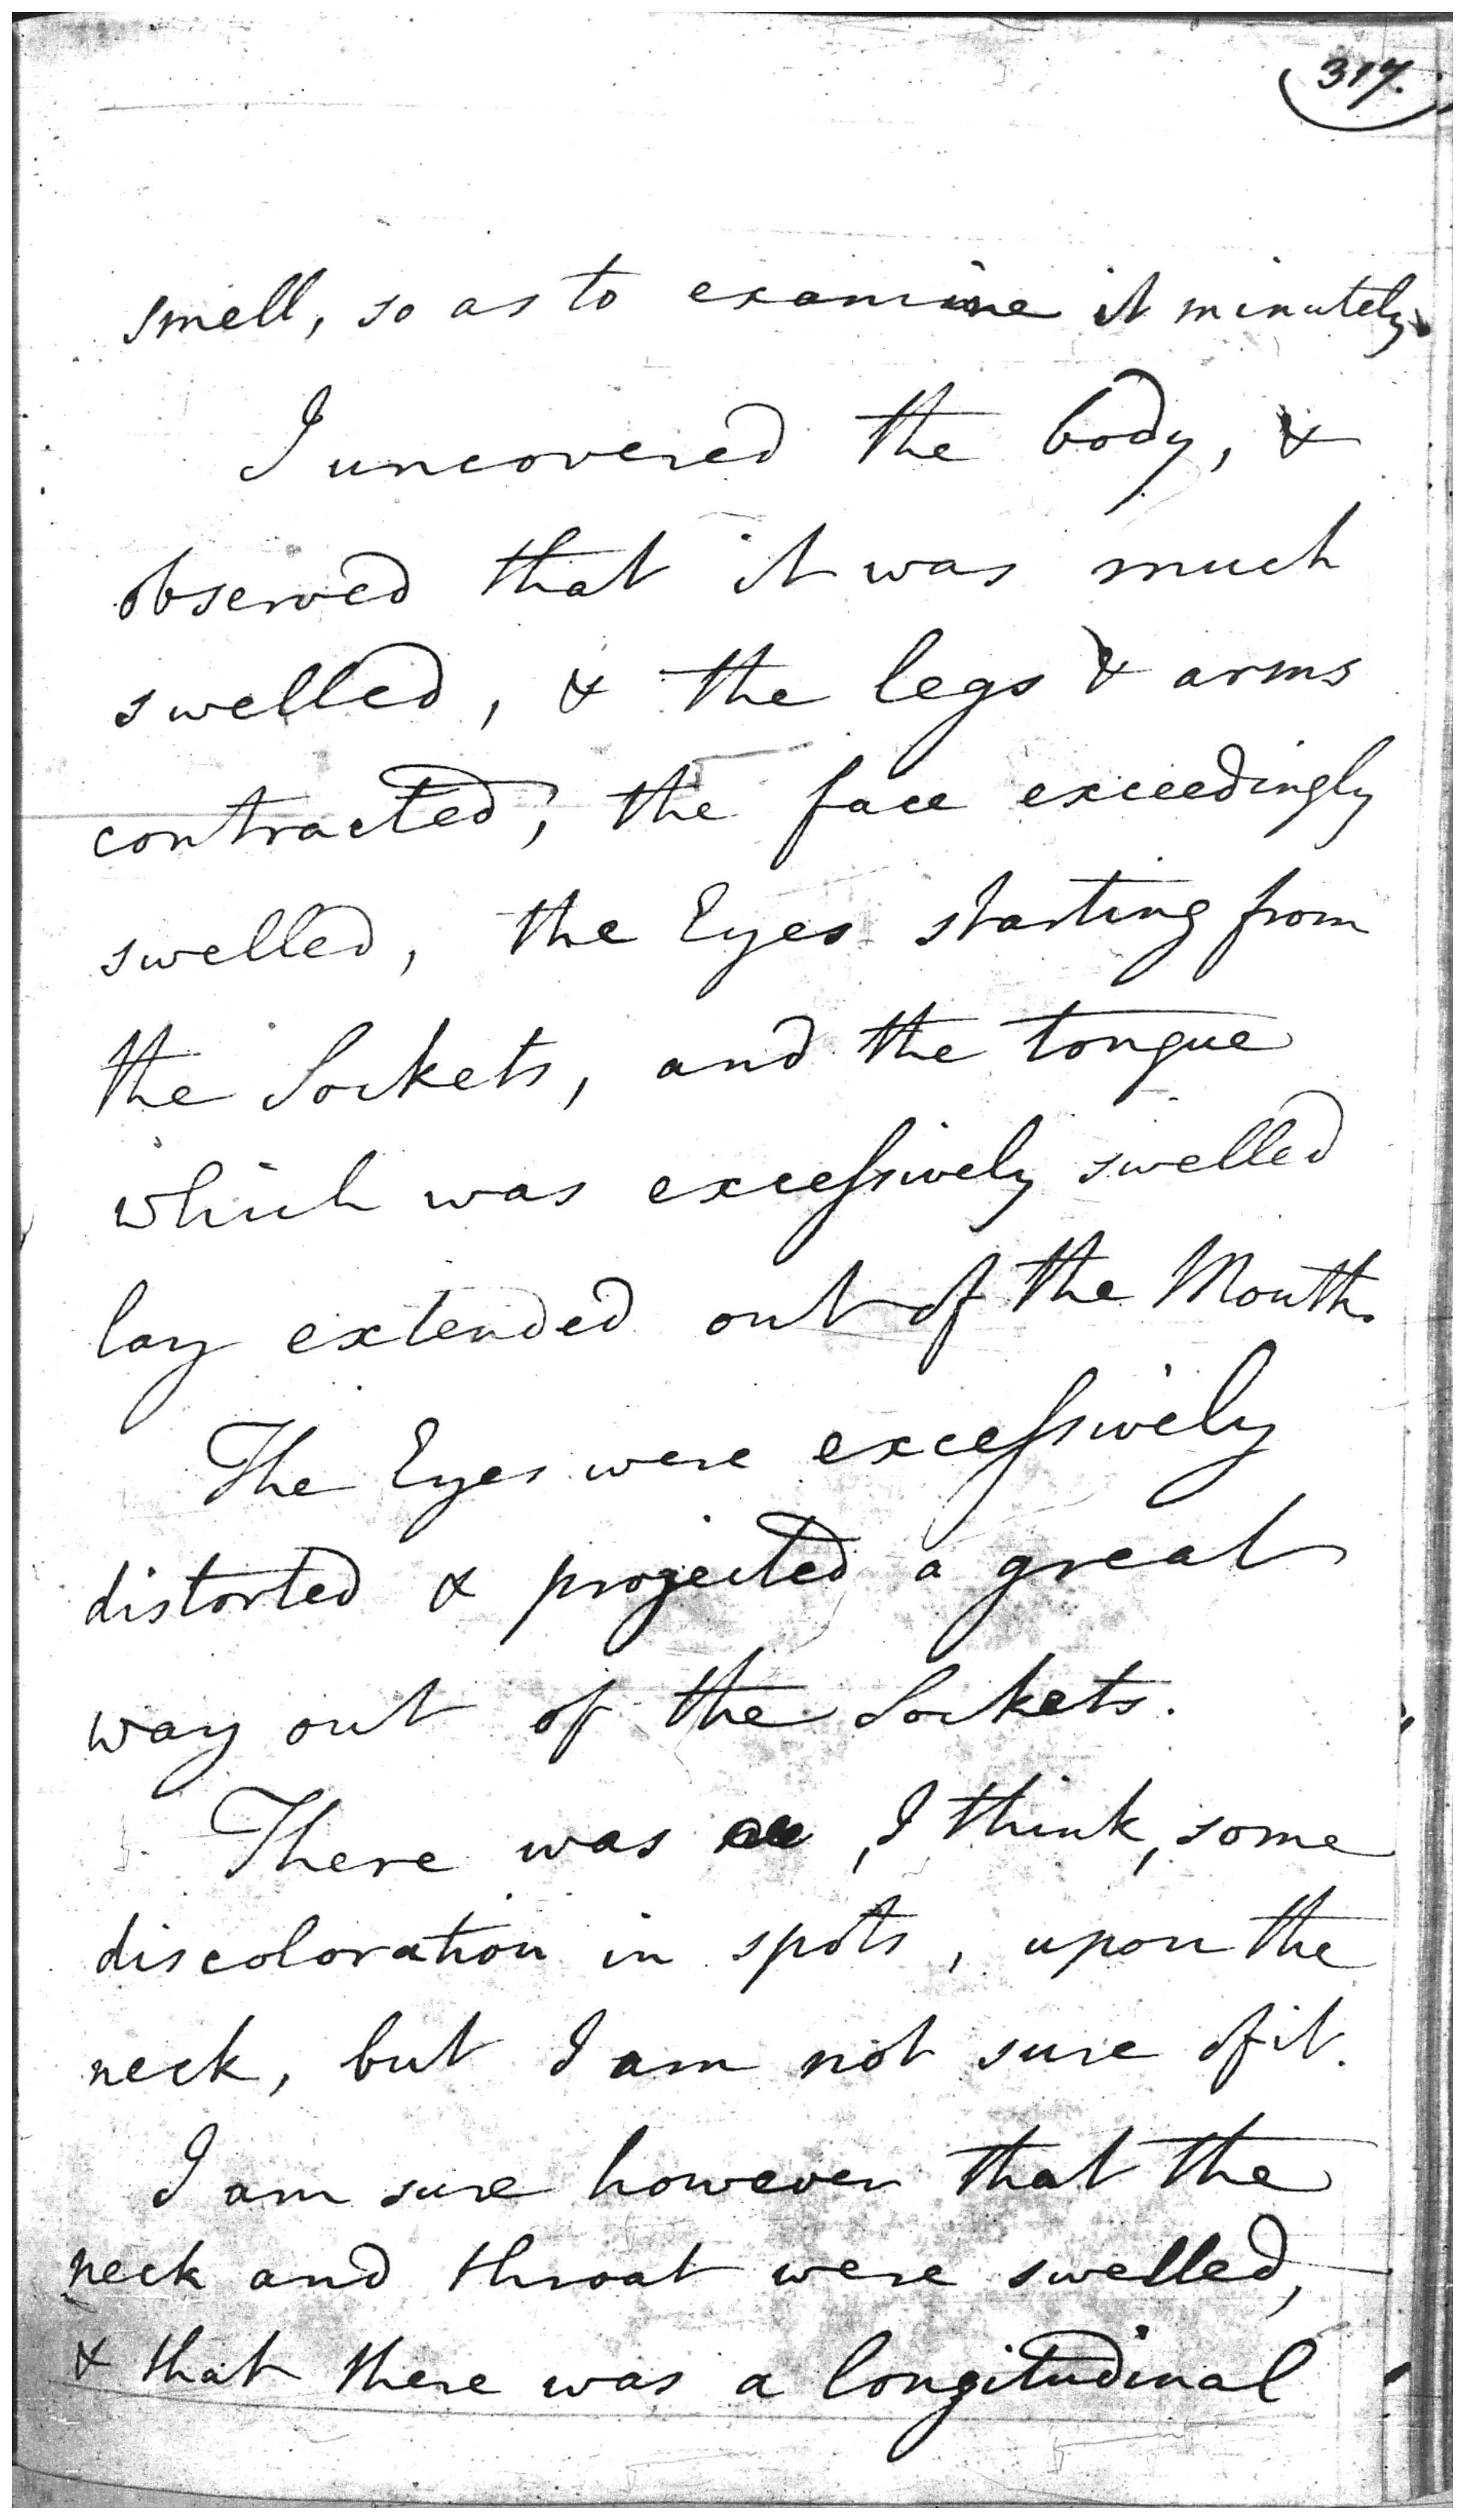 317.
smell, so as to examine it minutely.
I uncovered the body, &
observed that it was much
swelled, & the legs & arms
contracted, the face exceedingly
swelled, the Eyes starting from
the Sockets, and the tongue
which was excessively swelled
lay extended out of the Mouth.
The Eyes were excessively
distorted & projected a great
way out of the Sockets.
There was , I think, some
discoloration in spots, upon the
neck, but I am not sure of it.
I am sure however that the
neck and throat were swelled,
& that there was a longitudinal